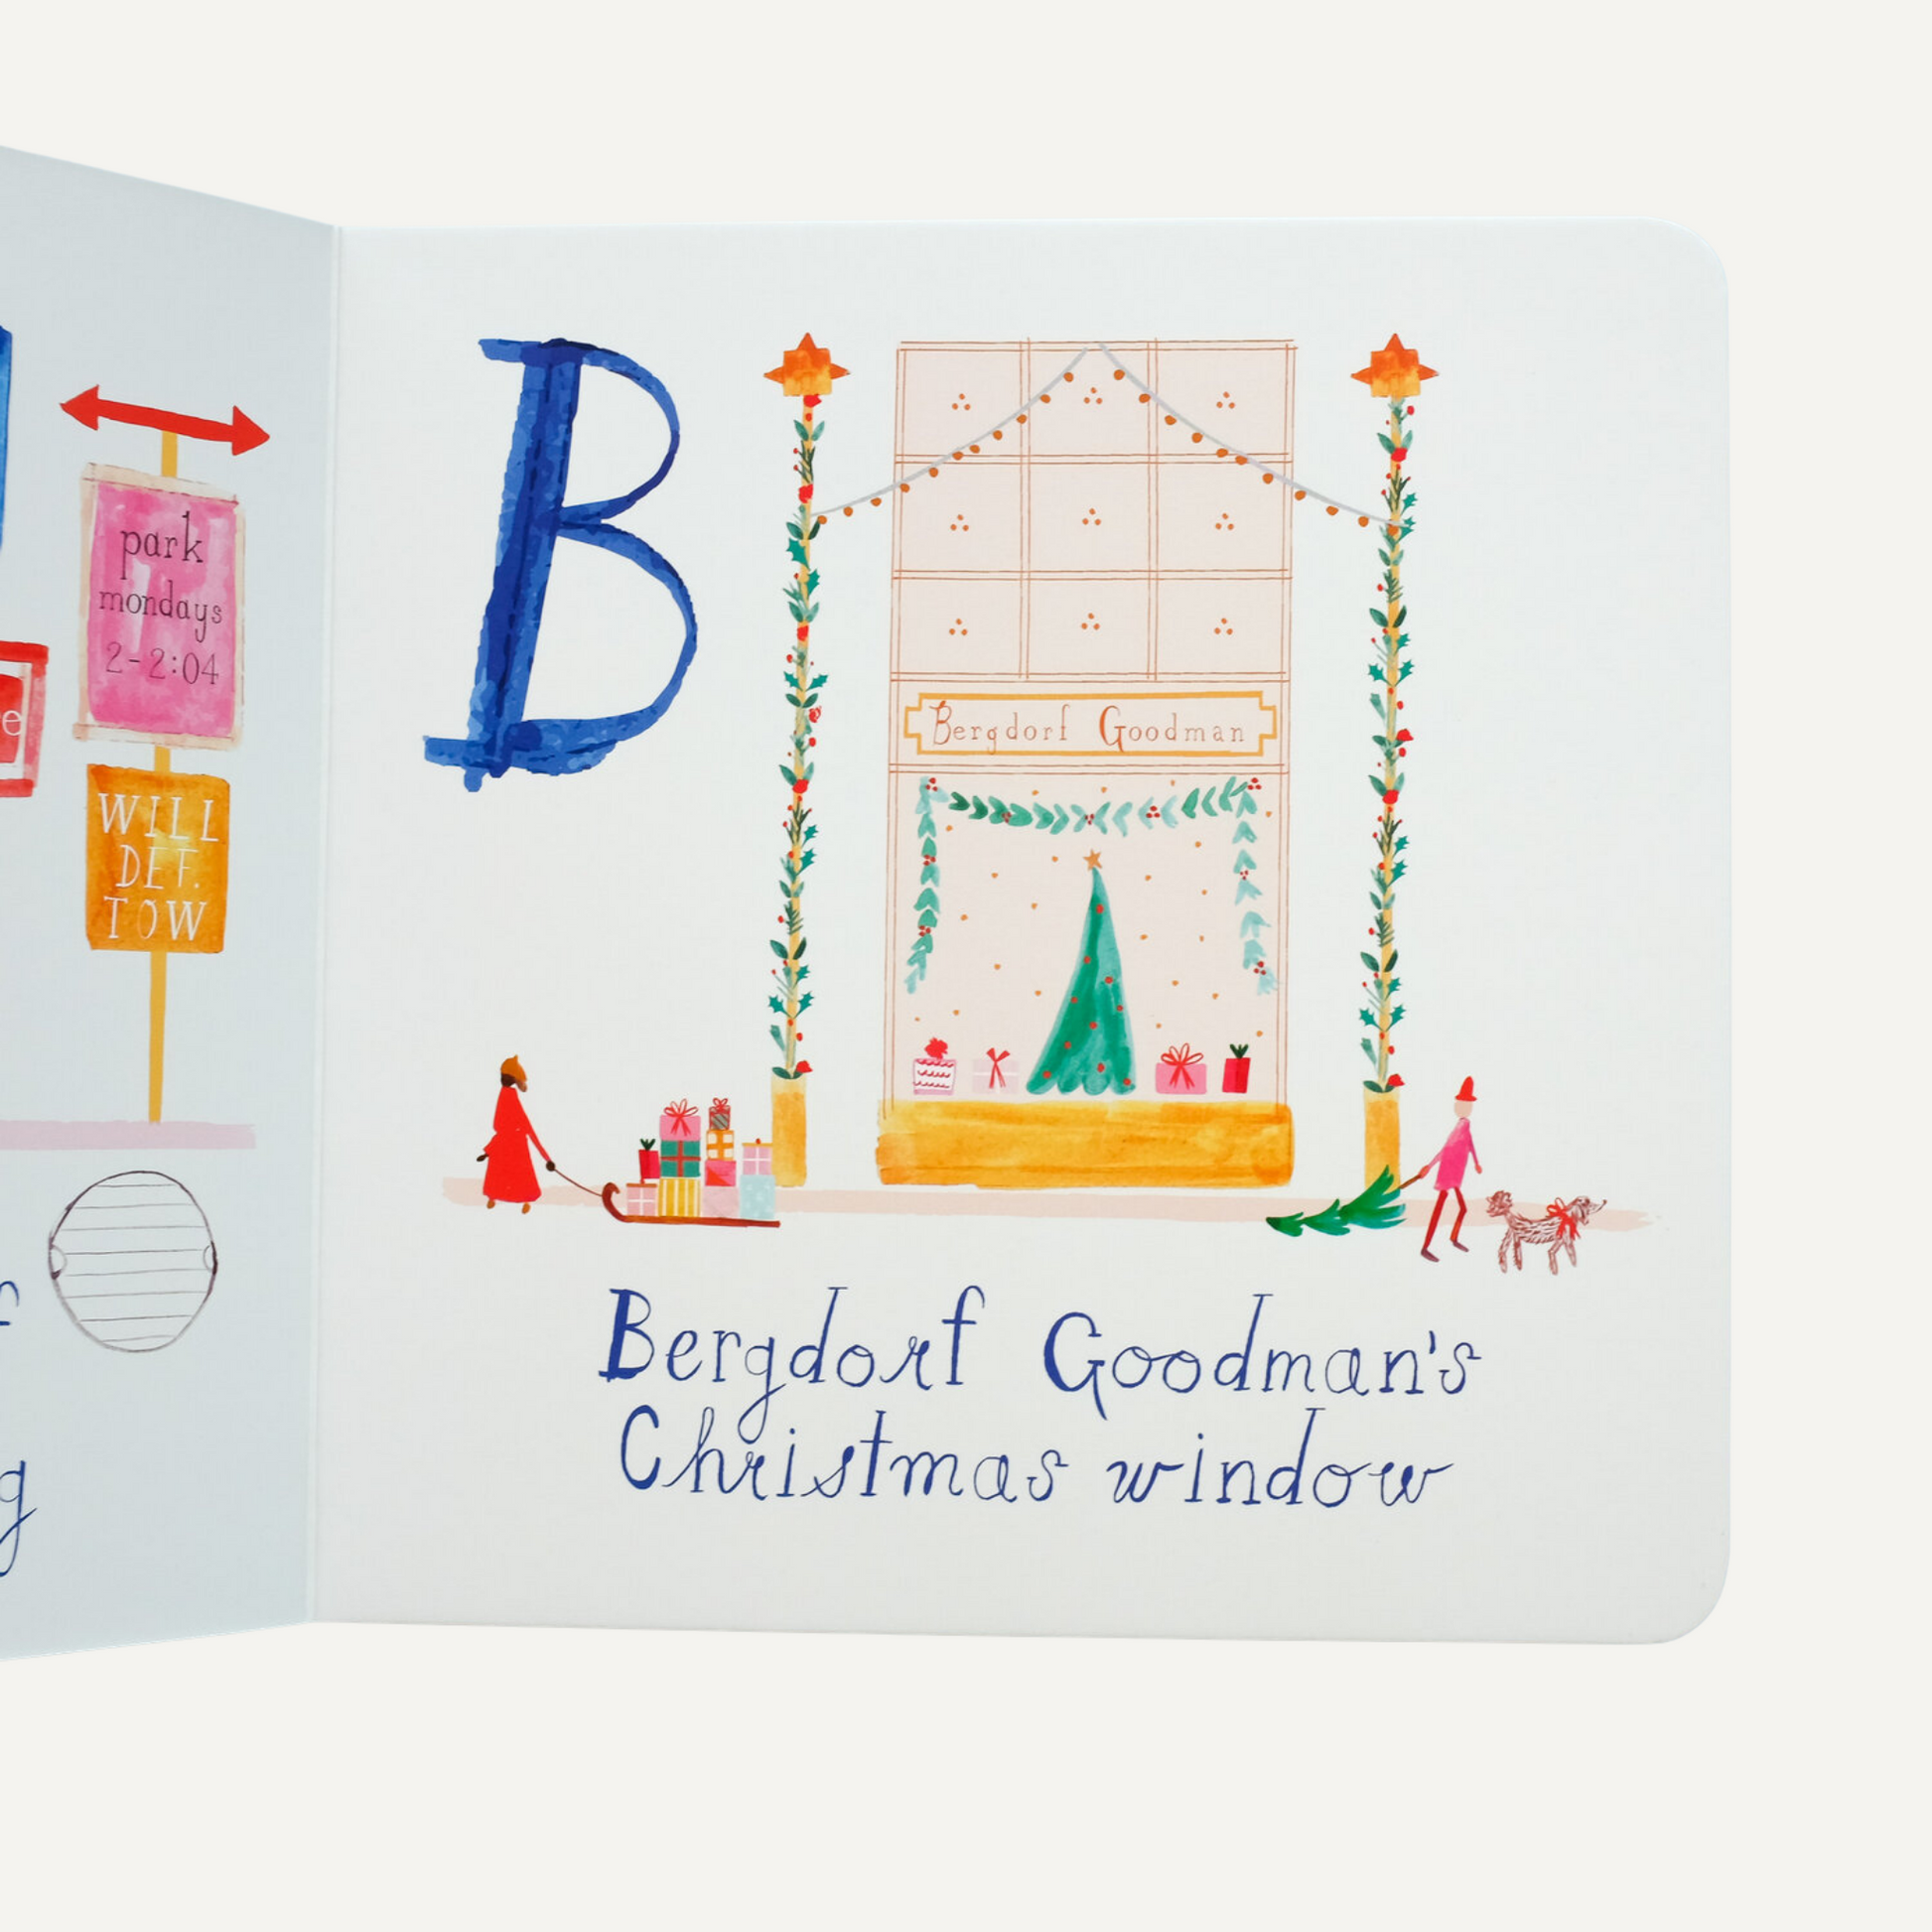 park
mondays
2-2:04
e
WILL
DEF.
TOW
f
g
B
Bergdorf Goodman
Bergdorf Goodman's
Christmas window